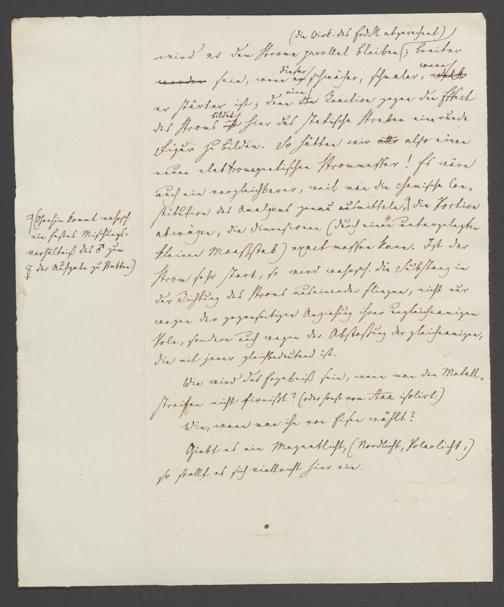 (die Wirk. des Erd M abgerechnet)
wird er dem Strome parallel bleiben (; breiter
werden sein, wenn dieser schwächer, schmaler, wenn
er stärker ist; denn eine Reaction gegen den Effect
des Stroms bildet hier das statische Streben eine runde
Figur zu bilden. So hätten wir also einen
neuen elektromagnetischen Strommesser! Er wäre
auch ein vergleichbarer, weil man die chemische Con-
stitution des Amalgams genau ausmitteln, die Portion
abwägen, die Dimensionen (durch einen untergelegten
kleinen Maaßstab) exact messen kann. Ist der
Strom sehr stark, so wird wahrsch. die Substanz in
der Richtung des Stroms auseinander fliegen, nicht nur
wegen der gegenseitigen Anziehung ihrer ungleichnamigen
Pole, sondern auch wegen der Abstoßung der gleichnamigen,
die mit jener gleichbedeutend ist.
(Ohnehin kommt wahrsch.
ein festes Mischungs-
verhältniß des ♂ zum
☿ der Aufgabe zu Statten)
Wie wird das Ergebniß sein, wenn man den Metall-
streifen nicht firnißt? (oder sonst vom isolirt.)
Wie, wenn man ihn von Eisen wählt?
Giebt es ein Magnetlicht, (Nordlicht, Polarlicht,)
so stellt es sich vielleicht hier ein.